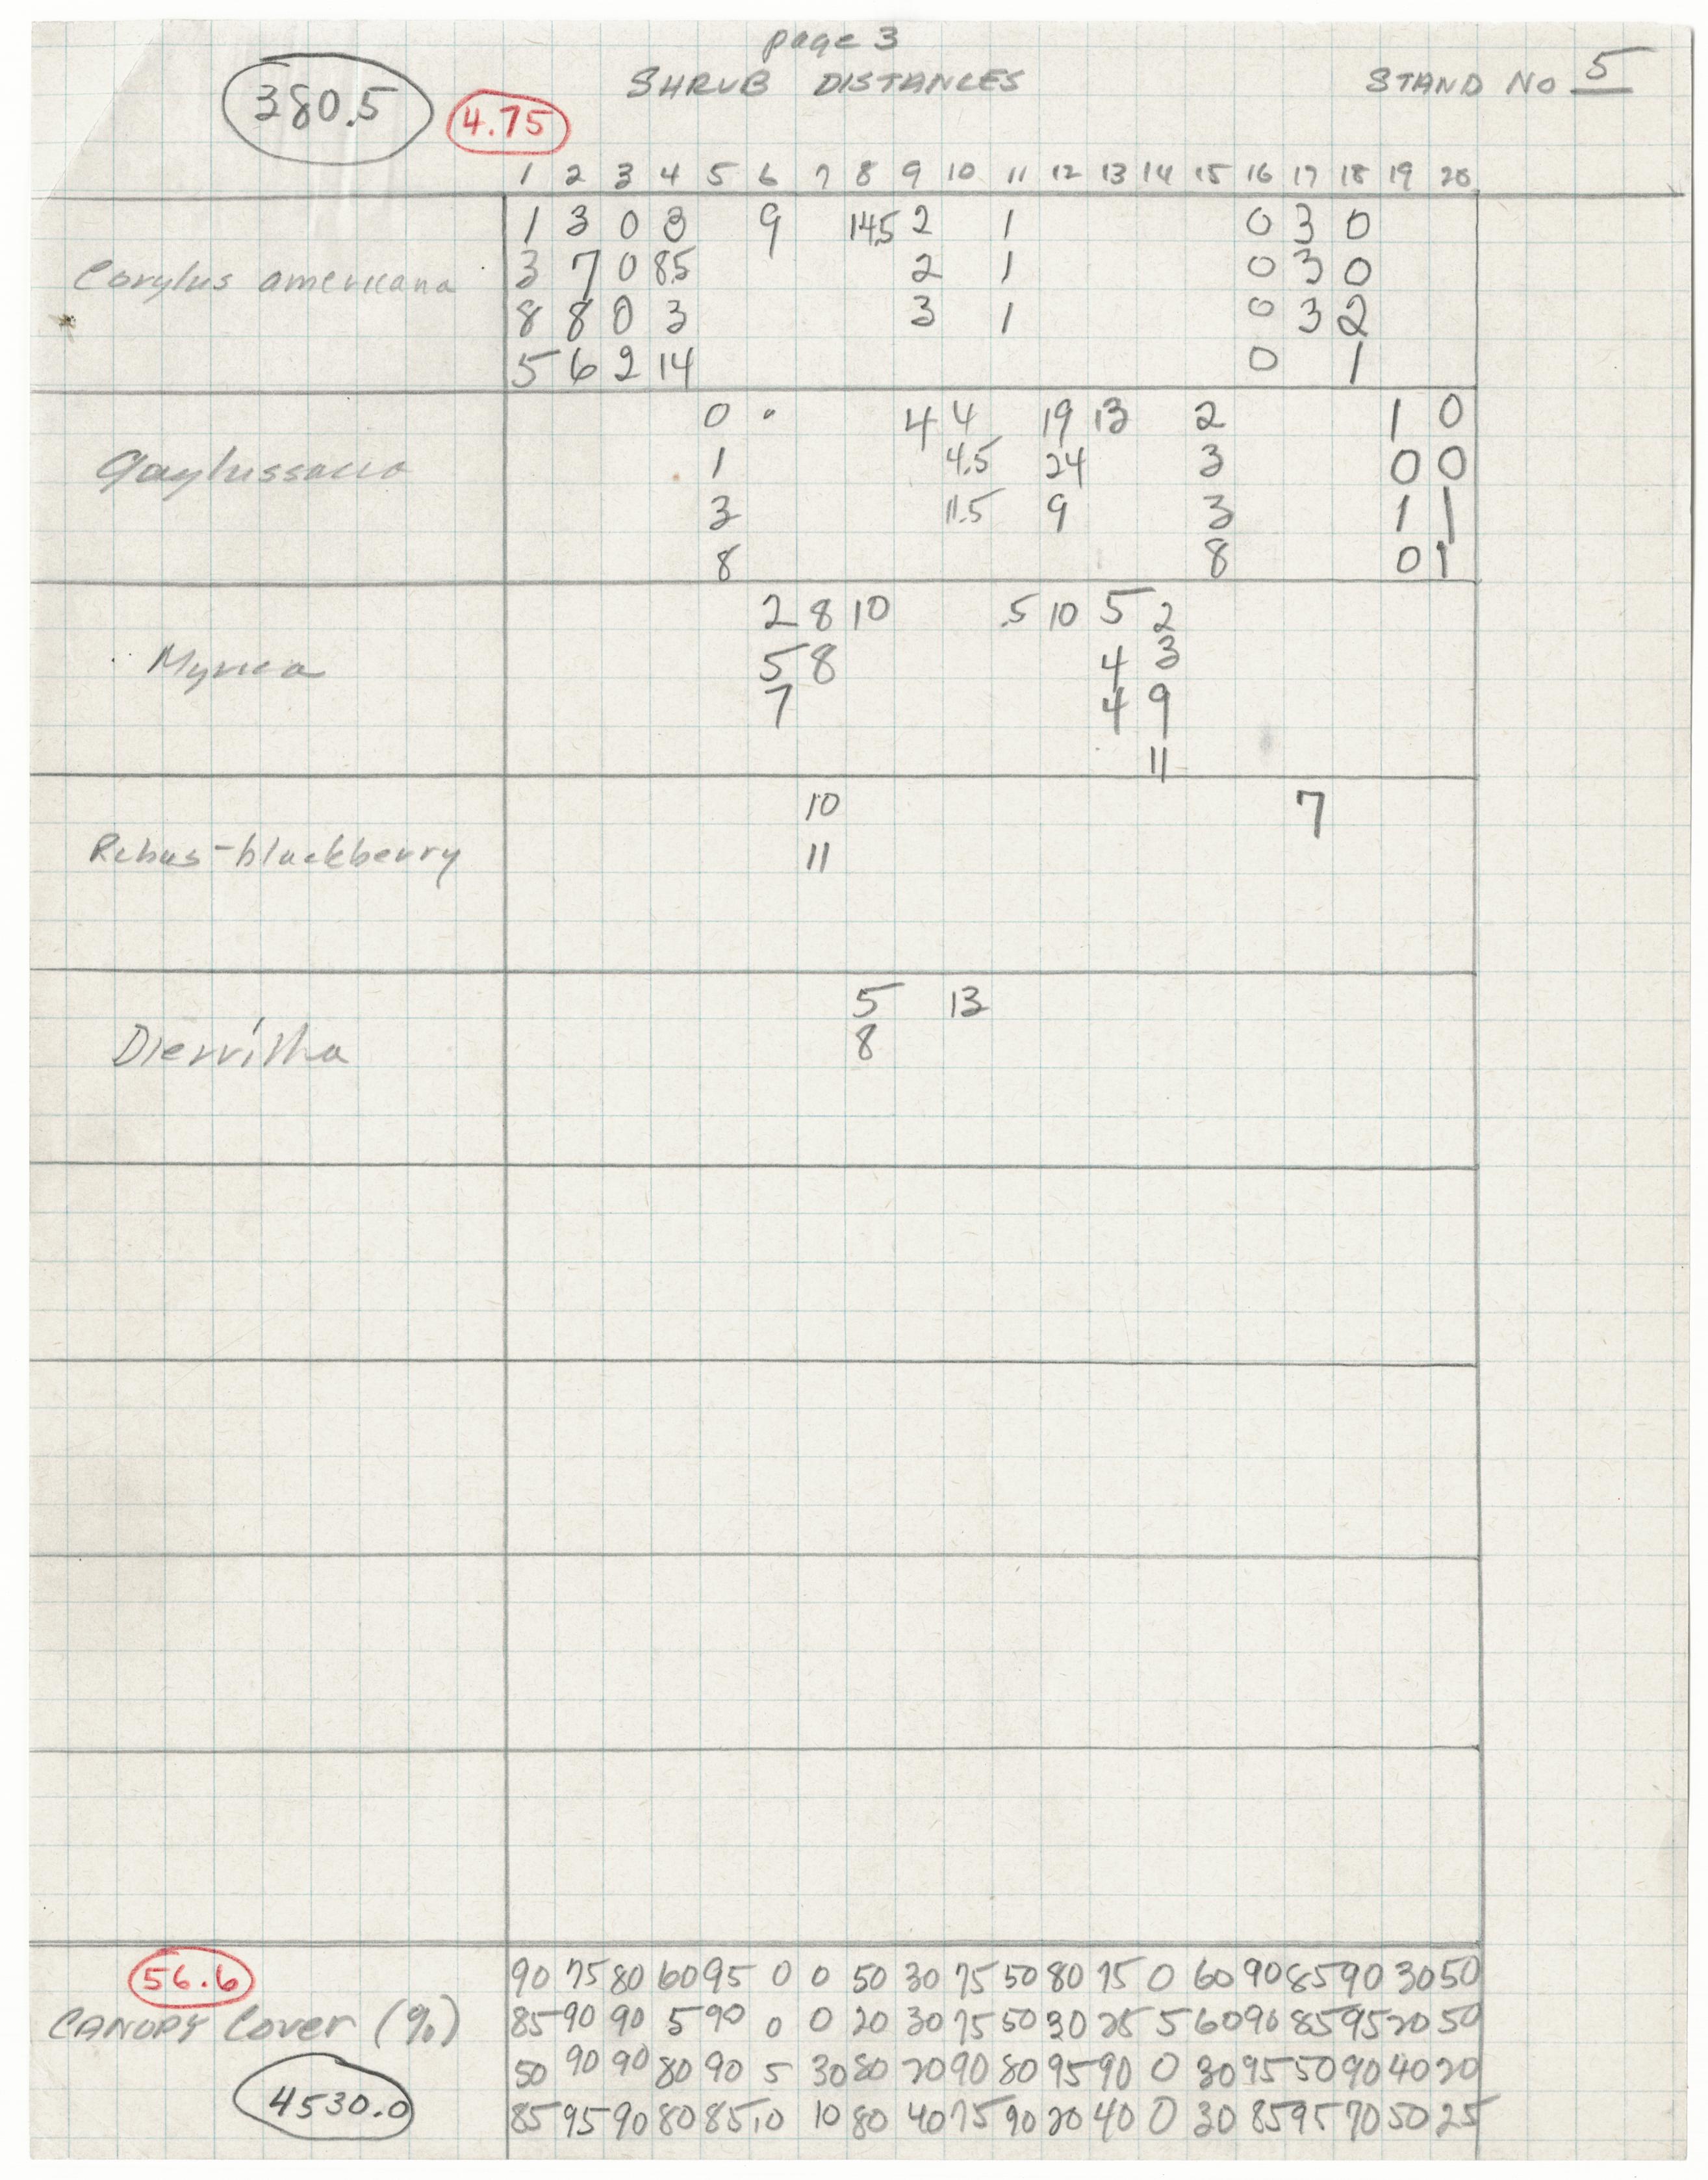 page 3
380.5 4.75 SHRUB DISTANCES STAND NO 5
1 2 3 4 5 6 7 8 9 10 11 12 13 14 15 16 17 18 19 20
1 3 0 3 9 14.5 2 1 0 3 0
Corylus americana 3 7 0 8.5 2 1 0 3 0
8 8 0 3 3 1 0 3 2
5 6 2 14 0 1
0 0 4 4 19 13 2 1 0
Gaylussacia 1 4.5 24 3 0 0
3 11.5 9 3 1 1
8 8 0 1
2 8 10 .5 10 5 2
Myrica 5 8 4 3
7 4 9
11
10 7
Rubus-blackberry 11
5 13
Diervilla 8
56.6 90 75 80 60 95 0 0 50 30 75 50 80 75 0 60 90 85 90 30 50
CANOPY Cover (%) 85 90 90 5 90 0 0 20 30 75 50 30 25 5 60 90 85 95 20 50
50 90 90 80 90 5 30 80 70 90 80 95 90 0 30 95 50 90 40 20
4530.0 85 95 90 80 85 10 10 80 40 75 90 20 40 0 30 85 95 70 50 25